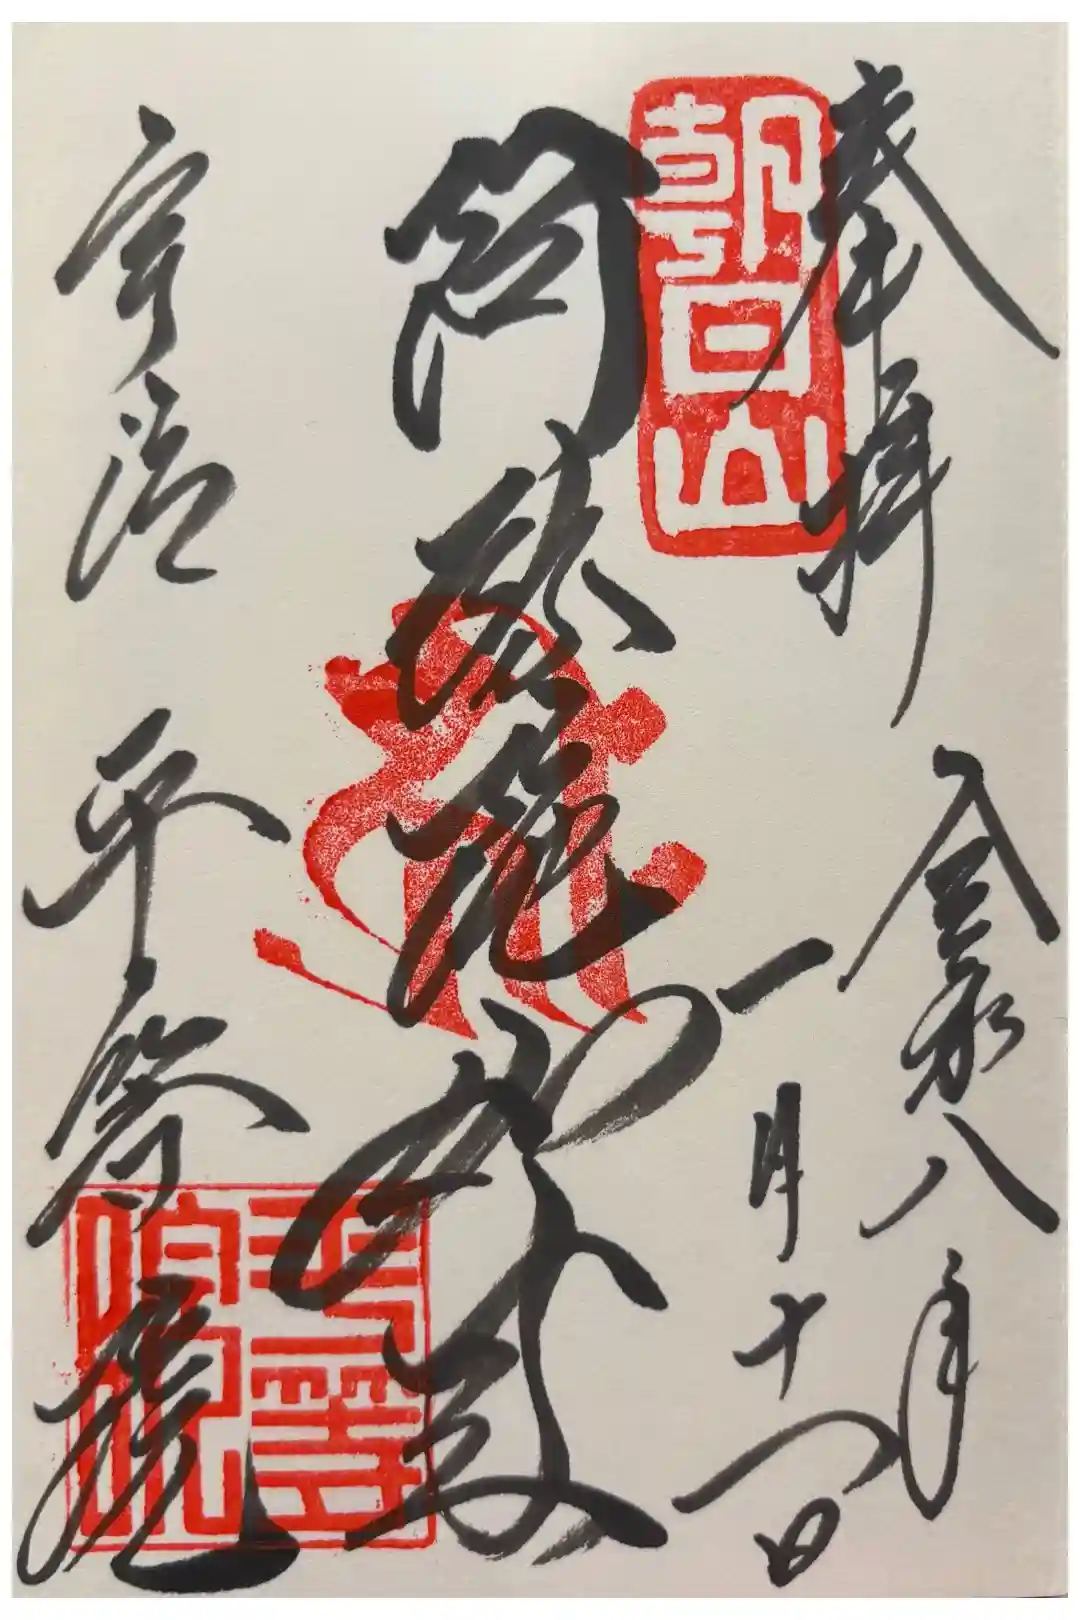 奉拝
朝日山
令和八年
一月十八日
阿弥陀如来
宇治 平等院
平等院印